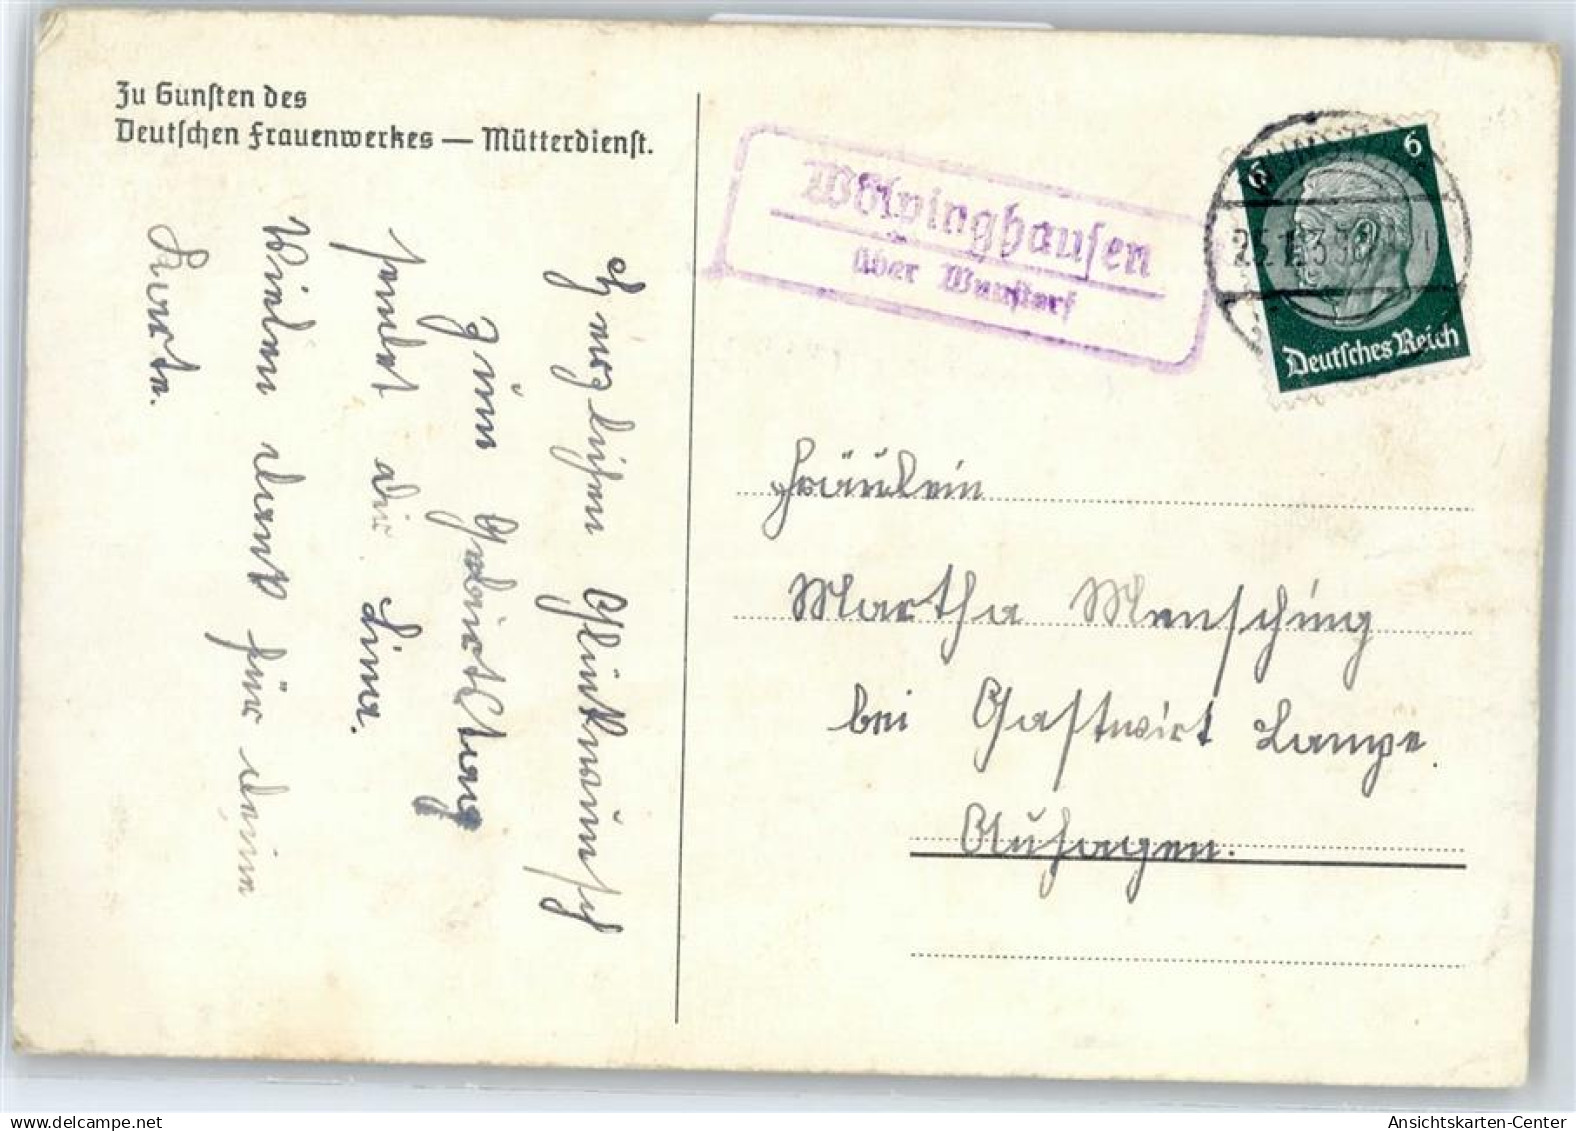 Zu Gunsten des
Deutschen Frauenwerkes — Mütterdienst.
Herzlichen Glückwunsch
zum Geburtstag
sendet dir Lina.
Vielen Dank für deine
Karte.
Wölpinghausen
über Wunstorf
6 6
Deutsches Reich
Fräulein
Martha Mensching
bei Gastwirt Lampe.
Auhagen.
Ansichtskarten-Center